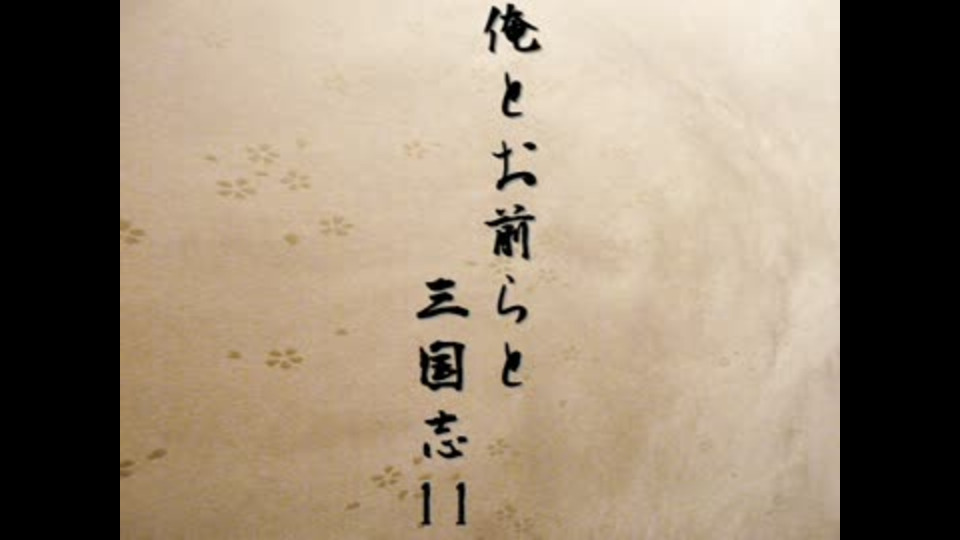 俺とお前らと
三国志11